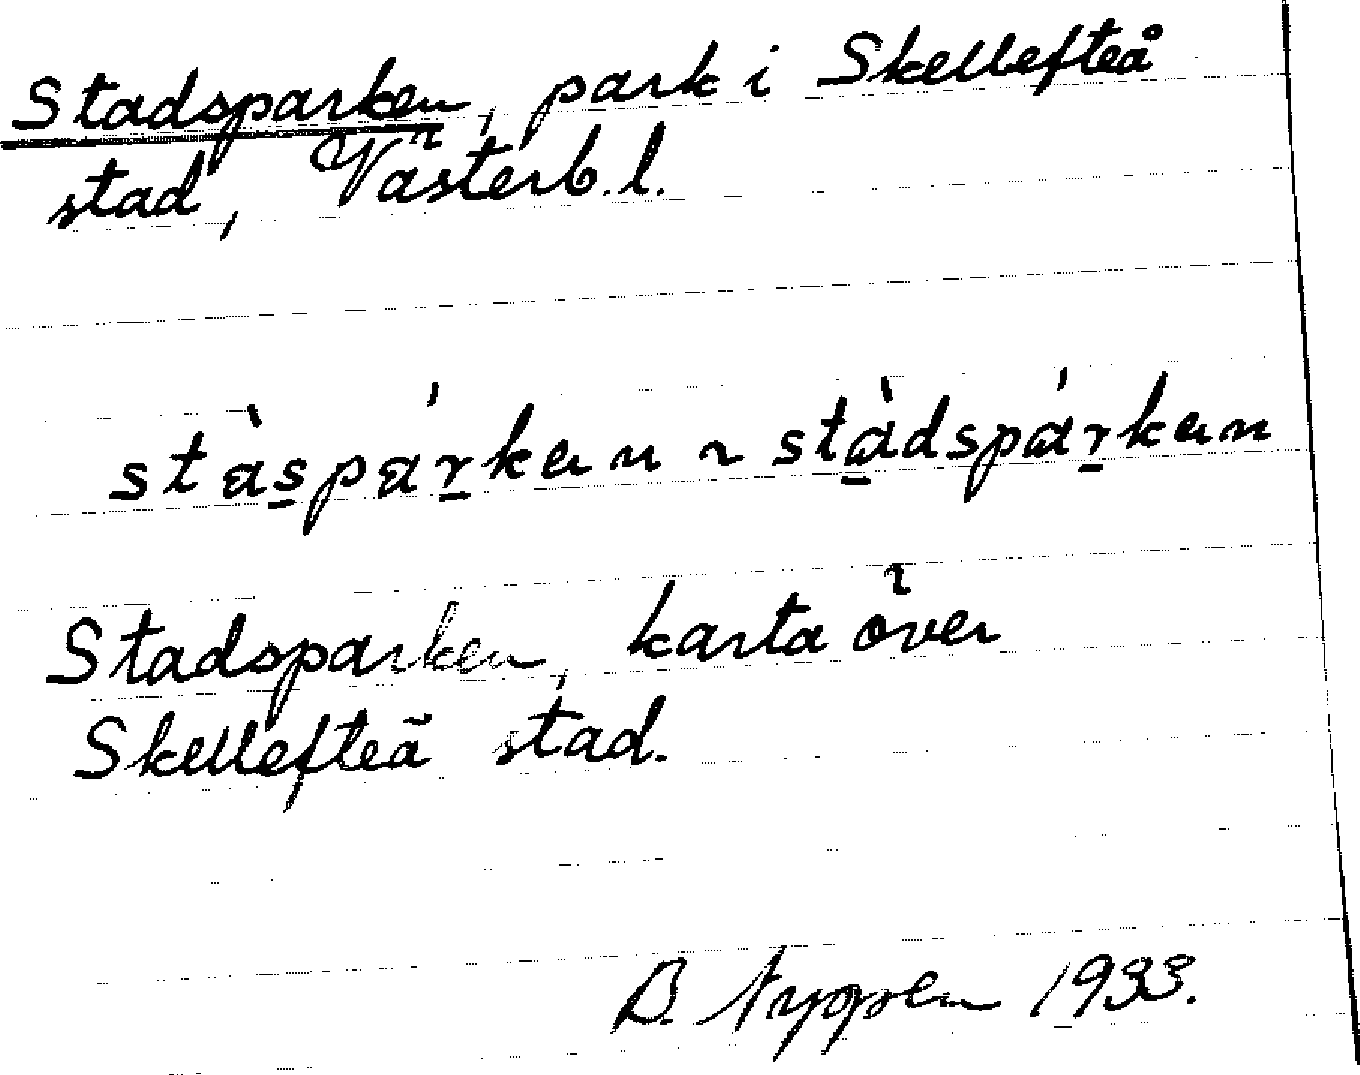 Stadsparken, park i Skellefteå
stad, Västerb.l.
stàspárken ~ stàdspárken
Stadsparken, karta över
Skellefteå stad.
B. 1933.